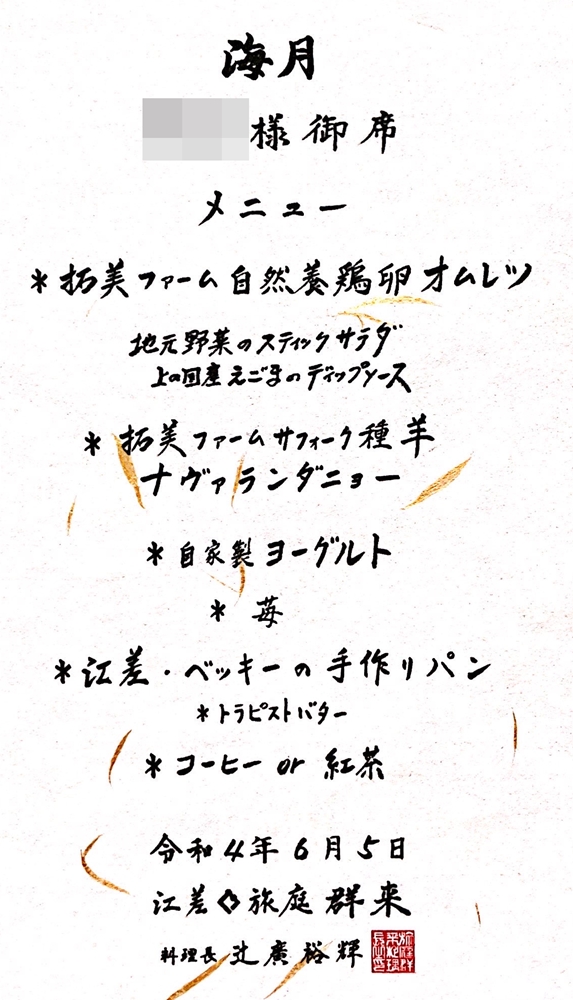 海月
様御席
メニュー
*拓美ファーム自然養鶏卵オムレツ
地元野菜のスティックサラダ
上の国産えごまのディップソース
*拓美ファームサフォーク種羊
ナヴァランダニョー
*自家製ヨーグルト
*苺
*江差・ベッキーの手作りパン
*トラピストバター
*コーヒー or 紅茶
令和4年6月5日
江差旅庭群来
料理長 辻廣裕輝